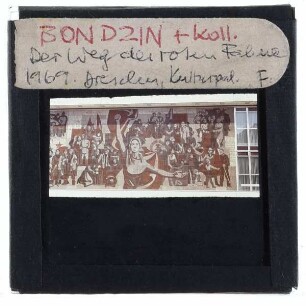 BONDZIN + Koll.
Der Weg der roten Fahne
1969. Dresden, Kulturpal. F.